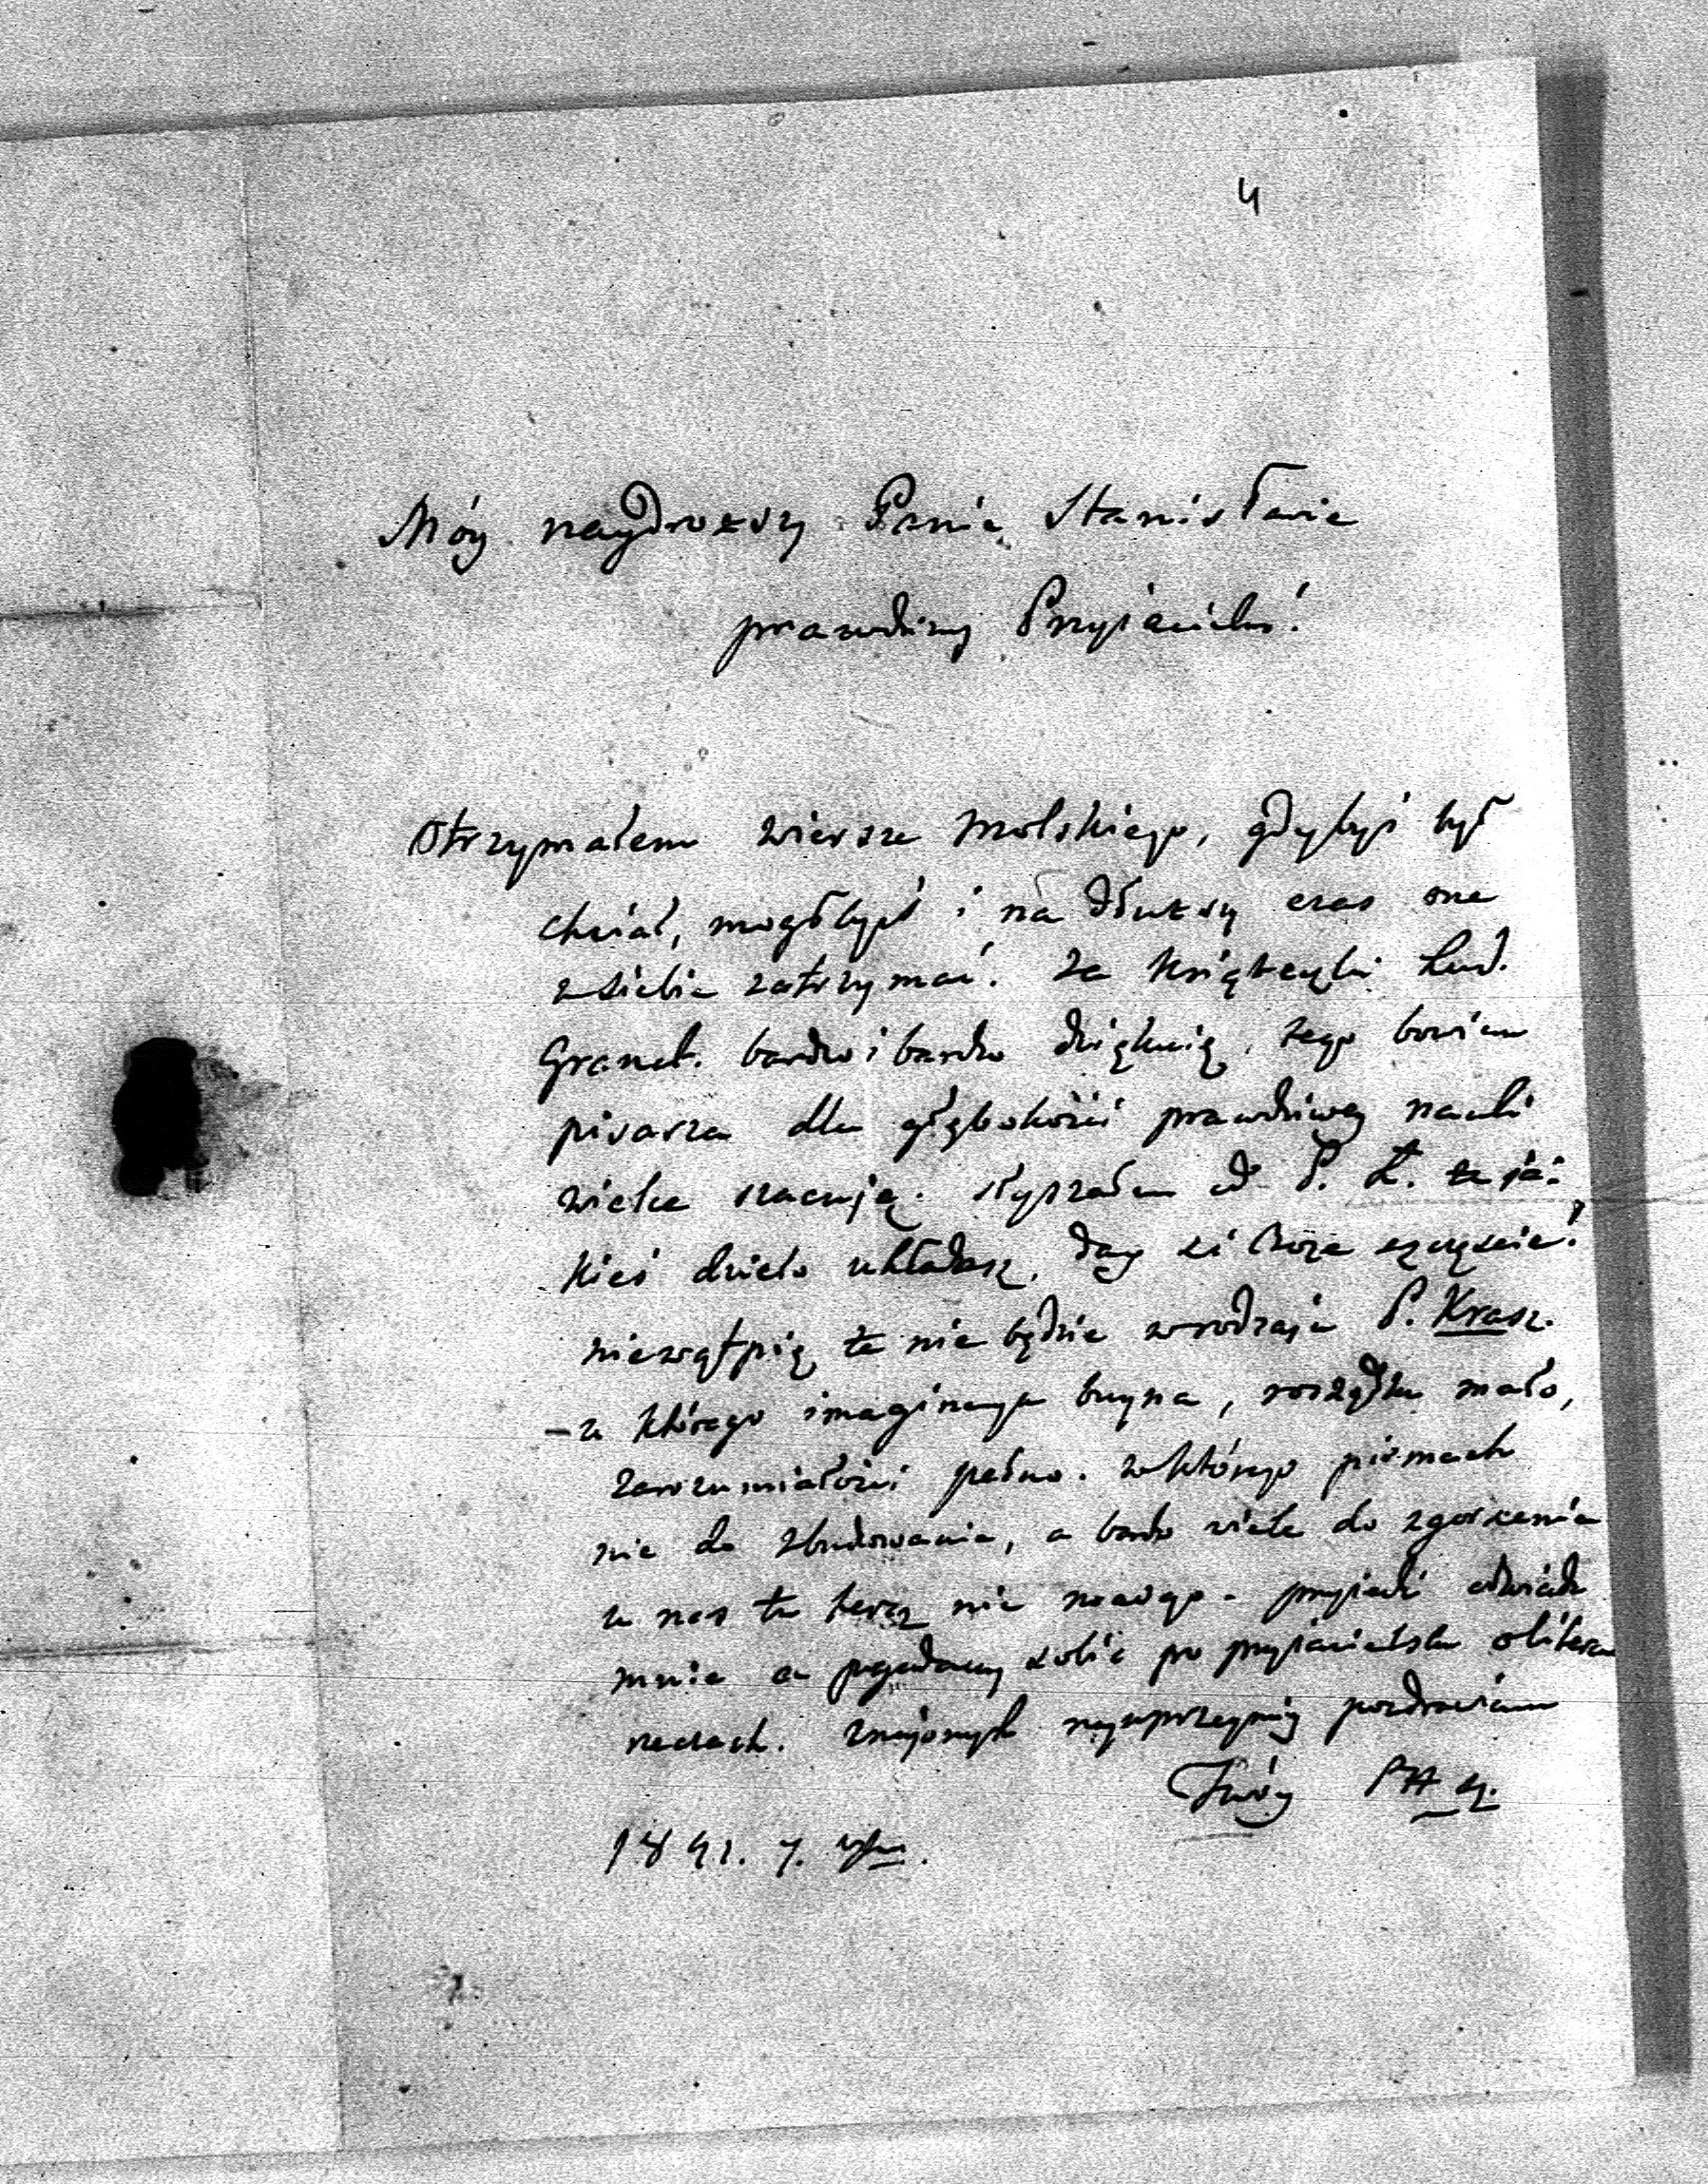 4
Móy naydroższy Panie Stanisławie
prawdziwy Przyiacielu!
Otrzymałem wiersze Molskiego, gdybyś był
chciał, mogłbyś i na dłuższy czas one
u siebie zatrzymać. Za książeczki Lud.
Granat. bardzo i bardzo dziękuię, tego bowiem
pisarza dla głębokości prawdziwey nauki
wielce szacuię. Słyszałem od P. Ł. że ja-
kieś dzieło układasz, day ci Boże szczęście!
niewątpię że nie będzie w rodzaju P. Krasz.
– u którego imaginacya buyna, rozsądku mało,
zarozumiałości pełno. w którego pismach
nic do zbudowania, a bardzo wiele do zgorszenia
u nas tu teraz nic nowego – przyiedź odwiedź
mnie a pogadamy sobie po przyiacielsku o litera
rzeczach. Znajomych nayuprzeymiey pozdrawiam
Twóy
1841. 7.